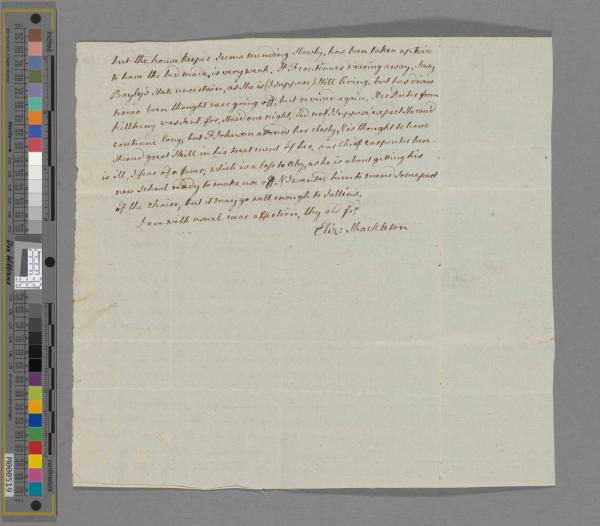 but the housekeeper seems mending slowly, has been taken up twice
to have the bed made, is very weak. continues wearing away, Susy
Bayly's state uncertain, as she is (I suppose) still living, but has divers
times been thought near going off, but revived again. Her from
Kilkenny was sent for, staid one night, did not I suppose expect she coud
continue long, but Johnson attends her closely, & is thought to have
shewed great skill in his treatment of her, our chief carpenter here
is ill, I fear of a fever, which is a loss to Aby, as he is about getting his
new school ready to make use of. & I wanted him to mend some part
of the chaise, but it may go well enough to Sallins.
I am with usual near affection, thy old frd
Eliz: Shackleton
inches
Don Williams
M000519
centimeters